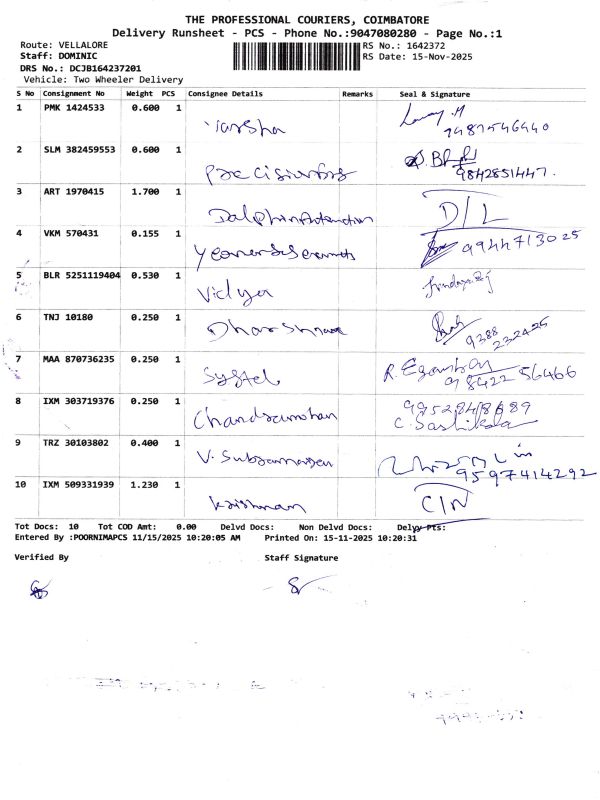 THE PROFESSIONAL COURIERS, COIMBATORE
Delivery Runsheet - PCS - Phone No.:9047080280 - Page No.:1
Route: VELLALORE RS No.: 1642372
Staff: DOMINIC RS Date: 15-Nov-2025
DRS No.: DCJB164237201
Vehicle: Two Wheeler Delivery
S No Consignment No Weight PCS Consignee Details Remarks Seal & Signature
1 PMK 1424533 0.600 1
Varsha 7487546440
2 SLM 382459553 0.600 1
9842851447.
3 ART 1970415 1.700 1 D/L
4 VKM 570431 0.155 1 9944713025
5 BLR 5251119404 0.530 1
Vidya
6 TNJ 10180 0.250 1
9388 232425
7 MAA 870736235 0.250 1
Systel 98422 56466
8 IXM 303719376 0.250 1
Chandramohan C. Sashikala
9 TRZ 30103802 0.400 1
V. 9597414292
10 IXM 509331939 1.230 1
Krishnan CIN
Tot Docs: 10 Tot COD Amt: 0.00 Delvd Docs: Non Delvd Docs: Delvy Pts:
Entered By :POORNIMAPCS 11/15/2025 10:20:05 AM Printed On: 15-11-2025 10:20:31
Verified By Staff Signature